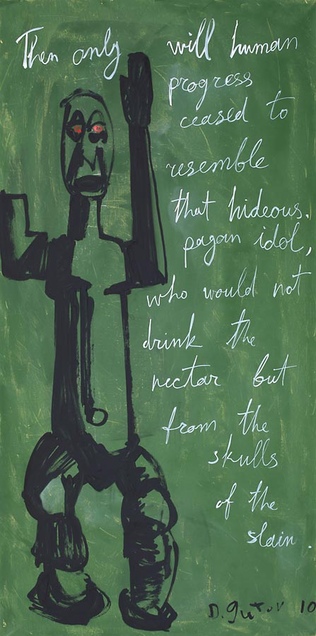 Then only will human
progress
ceased to
resemble
that hideous.
pagan idol,
who would not
drink the
nectar but
from the
skulls
of the
slain.
D. Gutov 10